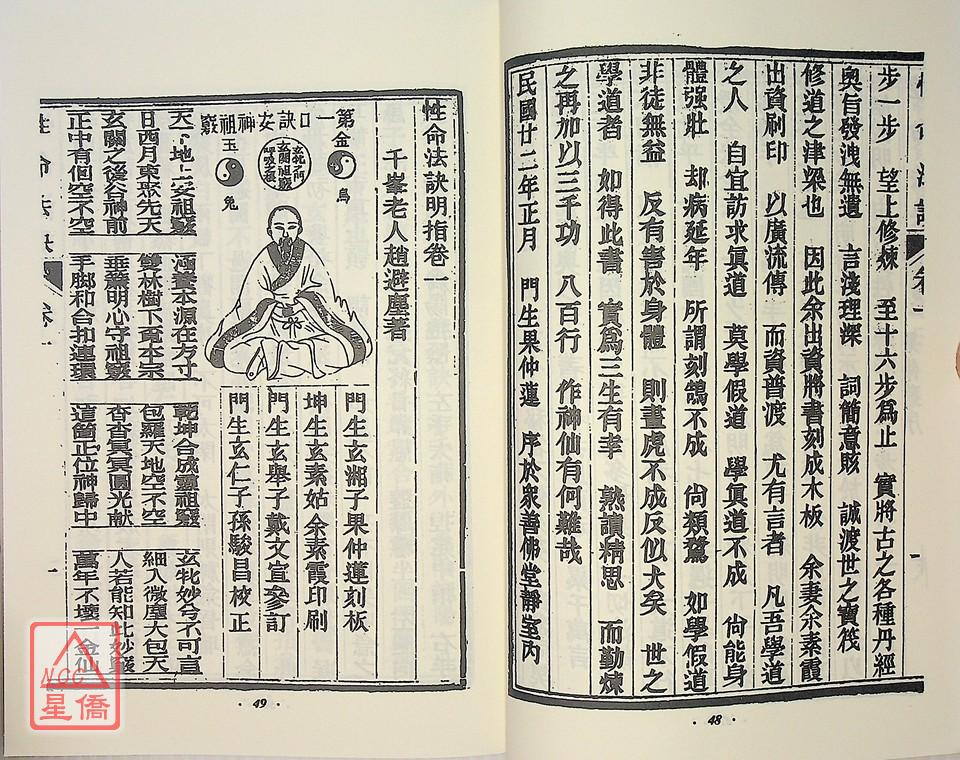 步一步　望上修煉　至十六步爲止　實將古之各種丹經
奥旨發洩無遺　言淺理深　詞簡意賅　誠渡世之寶筏
修道之津梁也　因此余出資將書刻成木板　余妻余素霞
出資刷印　以廣流傳　而資普渡　尤有言者　凡吾學道
之人　自宜訪求眞道　莫學假道　學眞道不成　尙能身
體强壯　却病延年　所謂刻鵠不成　尙類鶩　如學假道
非徒無益　反有害於身體　則畫虎不成反似犬矣　世之
學道者　如得此書　實爲三生有幸　熟讀精思　而勤煉
之再加以三千功　八百行　作神仙有何難哉
民國廿二年正月　門生果仲蓮　序於衆善佛堂靜室內
· 48 ·
性命法訣明指卷一
千峯老人趙避塵著
第一口訣安神祖竅
金
烏
玉
兎
門生玄湘子果仲蓮刻板
坤生玄素姑余素霞印刷
門生玄舉子戴文宣參訂
門生玄仁子孫駿昌校正
天下地上安祖竅　涵養本源在方寸　乾坤合成靈祖竅　玄牝妙兮不可言
日西月東聚先天　雙林樹下覓本宗　包羅天地空不空　細入微塵大包天
玄關之後谷神前　垂簾明心守祖竅　杳杳冥冥圓光献　人若能知此妙竅
正中有個空不空　手脚和合扣連環　這箇正位神歸中　萬年不壞一金仙
性命法訣　卷一
一
· 49 ·
NCC
星僑